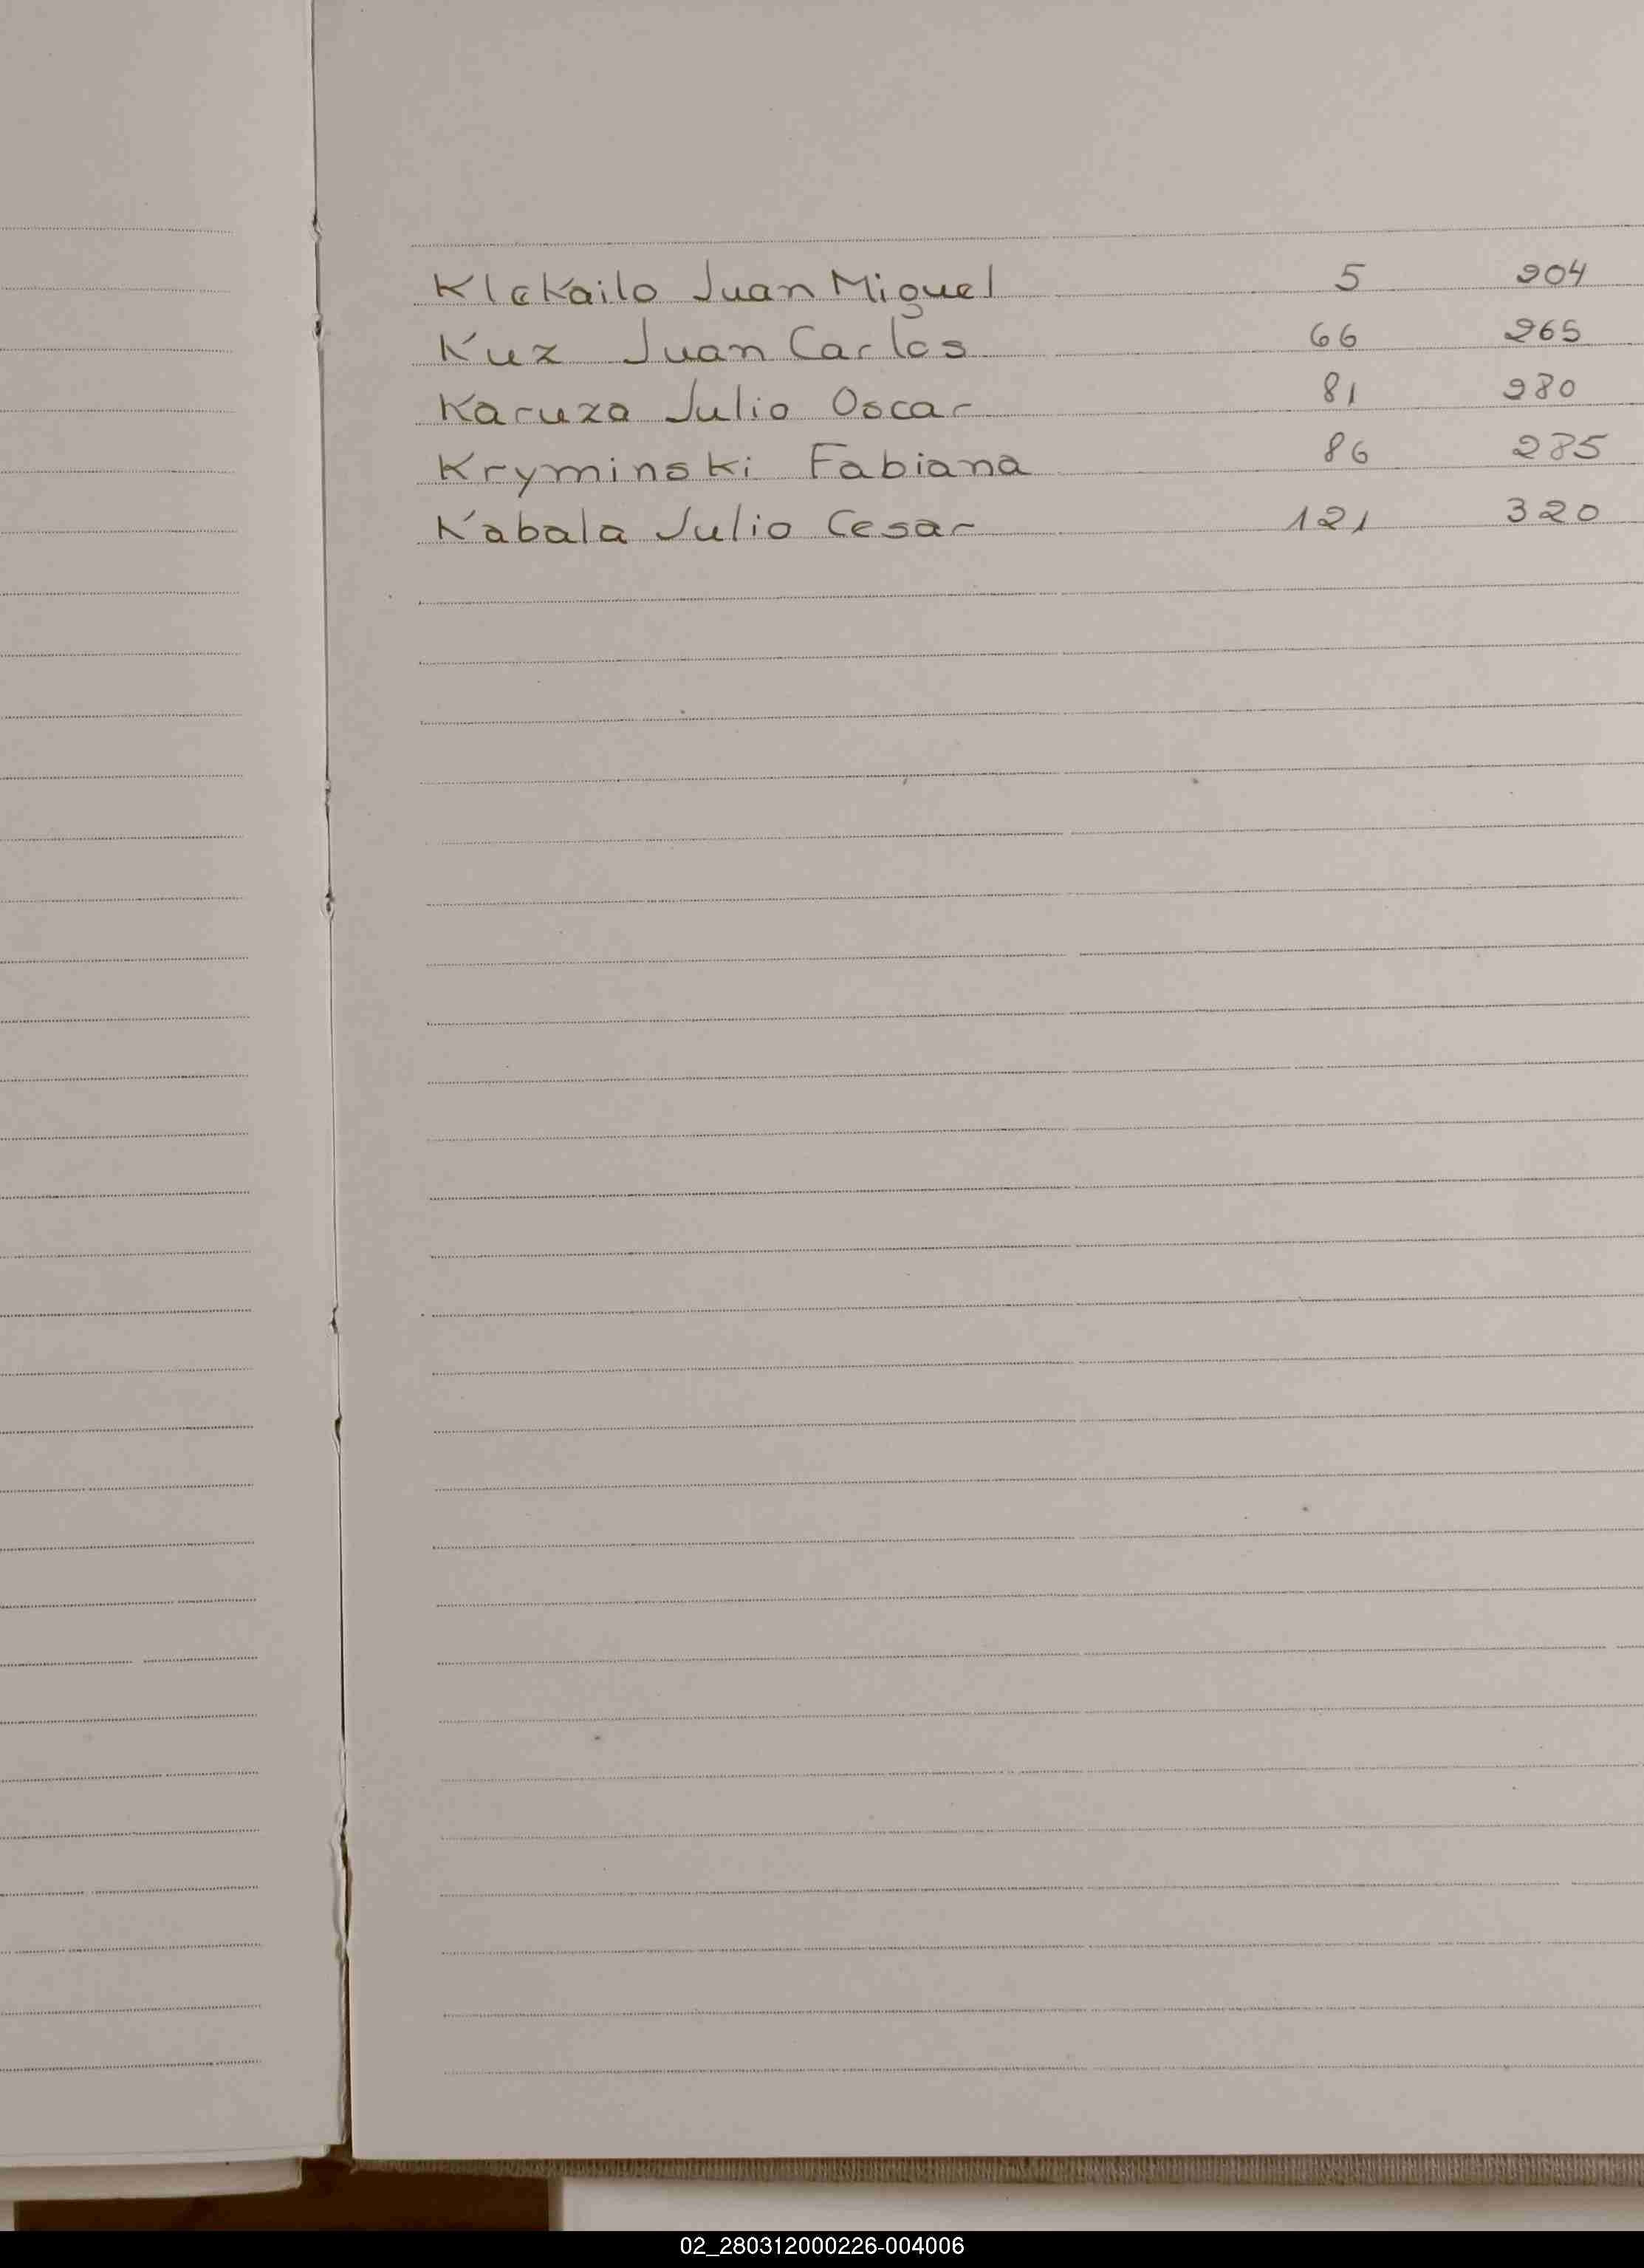 Klekailo Juan Miguel 5 204
Kuz Juan Carlos 66 265
Karuza Julio Oscar 81 280
Kryminski Fabiana 86 285
Kabala Julio Cesar 121 320
02_280312000226-004006